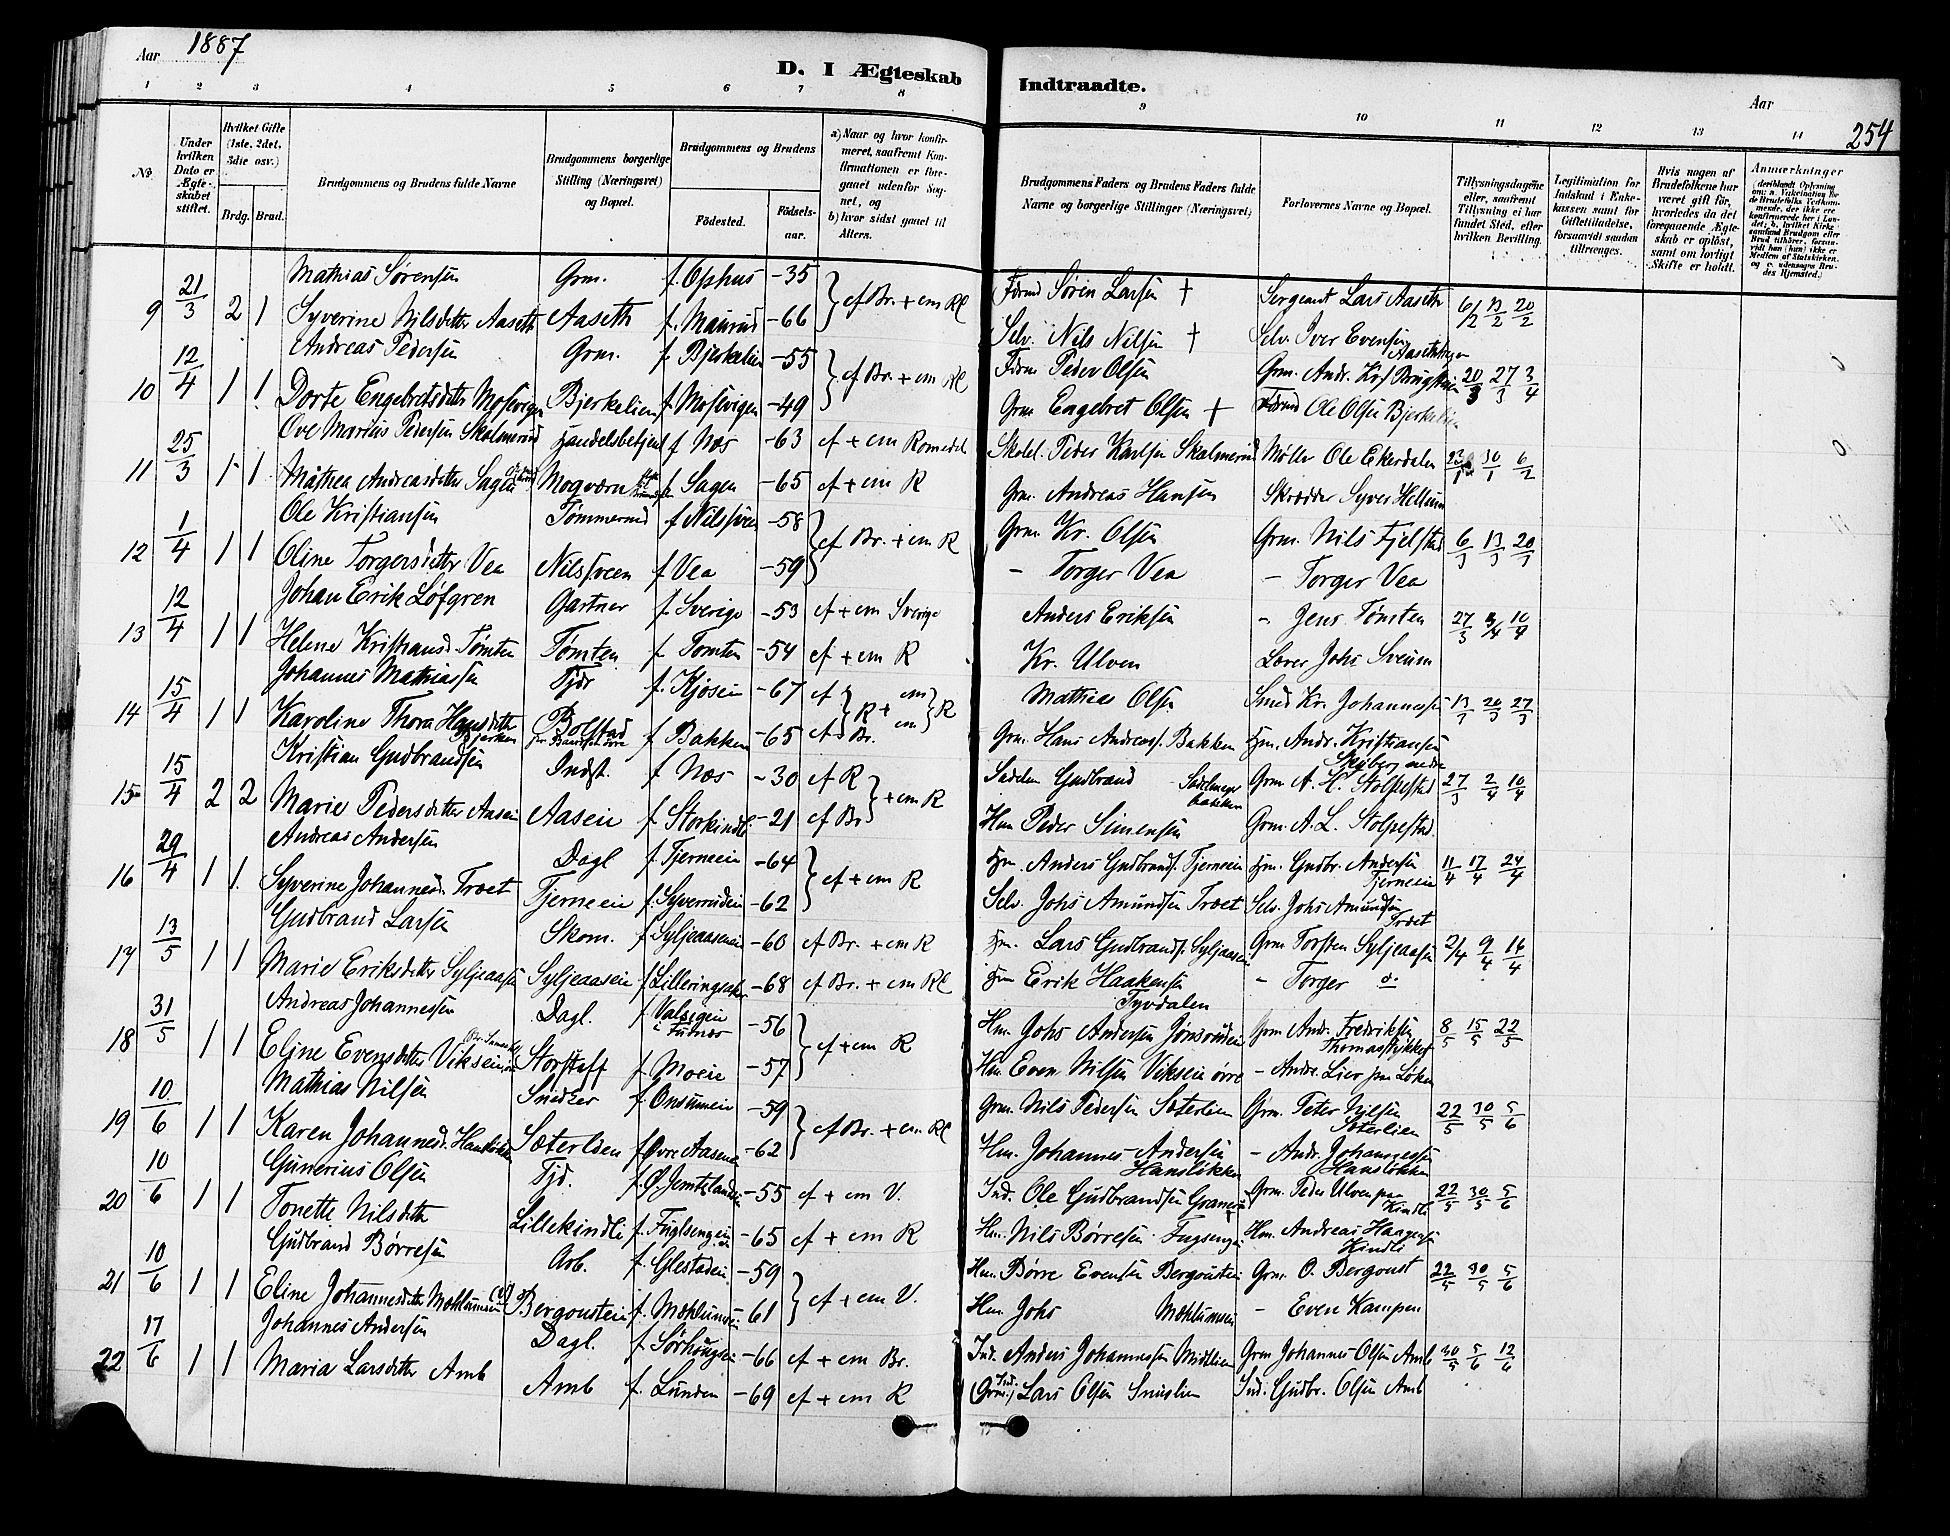 Aar 1887
D. I Ægteskab Indtraadte.
Aar
254
1 2 3 4 5 6 7 8 9 10 11 12 13 14
No.
Under hvilken Dato er Ægteskabet stiftet.
Hvilket Gifte (1ste, 2det, 3die osv.)
Brdg. Brud.
Brudgommens og Brudens fulde Navne
Brudgommens borgerlige Stilling (Næringsvei) og Bopæl.
Brudgommens og Brudens
Fødested. Fødselsaar.
a) Naar og hvor konfirmeret, saafremt Konfirmationen er foregaaet udenfor Sognet, og b) hvor sidst gaaet til Alters.
Brudgommens Faders og Brudens Faders fulde Navne og borgerlige Stillinger (Næringsvei)
Forlovernes Navne og Bopæl.
Tillysningsdagene eller, saafremt Tillysning ei har fundet Sted, efter hvilken Bevilling.
Legitimation for Indskud i Enkekassen samt for Giftettilladelse, forsaavidt saadan tiltrænges.
Hvis nogen af Brudefolkene har været gift før, hvorledes da det foregaaende Ægteskab er opløst, samt om lovligt Skifte er holdt.
Anmærkninger
Mathias Sørensen Grm. f. Ophus -35 Søren Larsen † Sergeant Lars Aaseth
9 21/3 2 1 Syverine Nilsdatter Aaseth Aaseth f. Maurud -66 cf Br. + cm R 6/2 13/2 20/2
Selv. Nils Nilsen † Selv. Iver Evensen
Andreas Pedersen Grm. f. Bjerkelien -55 Peder Olsen Grm. Andr.
10 12/4 1 1 Dorte Engebretsdatter Mosvigen Bjerkelien f. Mosvigen -49 cf Br. + cm R Grm Engebret Olsen † Ole Olsen Bjerkelien 20/3 27/3 3/4
Ove Marius Pedersen Skolmerud Handelsbetjent f Næs -63 cf + cm Romedal Peder Karlsen Skolmerud Møller Ole Ekerdalen
11 25/3 1 1 Mathea Andreasdatter Sagen f Sagen -65 cf + cm R Grm. Andreas Hansen Skrædder Syver Hellum 30/1 6/2
Ole Kristiansen Tømmermd f Nilssveen -58 Grm. Kr. Olsen Grm. Nils Fjelstad
12 1/4 1 1 Oline Torgersdatter Vea Nilssveen f Vea -59 cf Br. + cm R - Torger Vea - Torger Vea 6/3 13/3 20/3
Johan Erik Løfgren Gartner f. Sverige -53 cf + cm Sverige Anders Eriksen - Jens Tømten
13 12/4 1 1 Helene Kristiansd. Tømten Tømten f Tomten -54 cf + cm R Kr. Ulven Lærer Johs Sveum 27/3 3/4 10/4
Johannes Mathiassen Tjdr f. Kjøseien -67 Mathias Olsen Smed Kr. Johannessen
14 15/4 1 1 Karoline Thora Hansdatter Bolstad f Bakken -65 Grm. Hans Andreass. Bakken Hm. Andr. Kristiansen 13/3 20/3 27/3
Kristian Gudbrandsen Indst. f Næs -30 cf R Gudbrand Grm A. L. Stolpestad
15 15/4 2 2 Marie Pedersdatter Aaseie Aaseie f Storkindli -21 cf Br + cm R Hm Peder Simensen Grm. A. L. Stolpestad 27/3 2/4 10/4
Andreas Andersen Dagl f. Tjerneein -64 Hm. Anders Gudbrands. Tjerneein Hm. Gudbr. Andersen Tjerneein
16 29/4 1 1 Syverine Johannesd. Troet Tjerneein f. Syverrudein -62 cf + cm R Selv. Johs Amundsen Troet Selv. Johs Amundsen Troet 11/4 17/4 24/4
Gudbrand Larsen Skom. f. Syljeaaseien -60 cf Br. + cm R Hm. Lars Gudbrands. Syljeaasen Grm Torsten Syljeaasen
17 13/5 1 1 Marie Eriksdatter Syljeaasen Syljeaasein f. Lilleringsaker -68 cf Br. + cm R Hm Erik Haakensen Tyvdalen - Torger do 2/4 9/4 14/4
Andreas Johannessen Dagl. f. Valseien i Furnæs -56 Hm. Johs Andersen Jønsrudein Grm Andr. Fredriksen Thomasstykket
18 31/5 1 1 Eline Evensdatter Vikseien Storstoff f Moeie -57 cf + cm R Hm. Even Nilsen Vikseie øvre - Andr. Lier paa Løken 8/5 15/5 22/5
Mathias Nilsen Snedker f Onsumein -59 Grm. Nils Pedersen Sæterlien Grm. Peter Nilsen Sæterlien
19 10/6 1 1 Karen Johannesd. Hansløkken Sæterlien f Øvre Aaseeie -62 cf Br. + cm R Hm. Johannes Andersen Hansløkken - Andr. Johannessen Hansløkken 22/5 30/5 5/6
Gunerius Olsen Tjd. f. Ø. Jemtlandein -55 cf + cm V. Ind. Ole Gudbrandsen Graneien Grm. Peder Ulven paa Kindli
20 10/6 1 1 Tonette Nilsdatter Lillekindli f. Fuglsengein -65 cf + cm R Hm. Nils Børresen Fugsengen Hm. Andreas Haagensen Kindli 22/5 30/5 5/6
Gudbrand Børresen Arb. f. Glestadein -59 Hm. Børre Evensen Bergousteie Grm. O. Bergoust
21 10/6 1 1 Eline Johannesdatter Mæhlumein Bergousteie f. Mæhlumein -61 cf + cm V. Hm. Johs Mæhlumein - Even Kampen 22/5 30/5 5/6
Johannes Andersen Dagl. f. Sørhougen -66 cf + cm Br. Ind. Anders Johannessen Midtlien Grm Johannes Olsen Amb
22 17/6 1 1 Maria Larsdatter Amb Amb f. Lunden -69 cf + cm R (Grm.) Lars Olsen Smuslien Ind. Gudbr. Olsen Amb 30/5 5/6 12/6